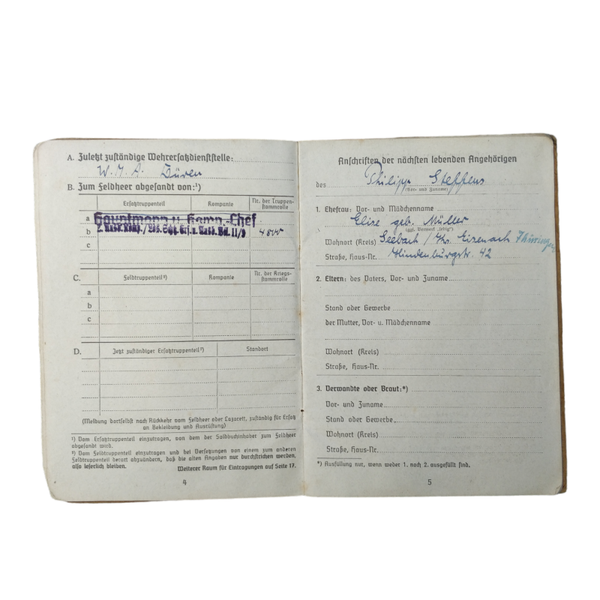 A. Zuletzt zuständige Wehrersatzdienststelle:
W. M. A. Düren
B. Zum Feldheer abgesandt von:¹)
Ersatztruppenteil Kompanie Nr. der Truppenstammrolle
a Hauptmann u. Komp.-Chef
b
c
C. Feldtruppenteil²) Kompanie Nr. der Kriegsstammrolle
a
b
c
D. Jetzt zuständiger Ersatztruppenteil²) Standort
(Meldung dortselbst nach Rückkehr vom Feldheer oder Lazarett, zuständig für Ersatz
an Bekleidung und Ausrüstung)
¹) Vom Ersatztruppenteil einzutragen, von dem der Soldbuchinhaber zum Feldheer
abgesandt wird.
²) Vom Feldtruppenteil einzutragen und bei Versetzungen von einem zum anderen
Feldtruppenteil derart abzuändern, daß die alten Angaben nur durchstrichen werden,
also leserlich bleiben.
Weiterer Raum für Eintragungen auf Seite 17.
4
Anschriften der nächsten lebenden Angehörigen
des Philipp Steffens
(Vor- und Zuname)
1. Ehefrau: Vor- und Mädchenname
Elise geb. Müller
(ggf. Vermerk „ledig")
Wohnort (Kreis) Seebach / Kr. Eisenach Thüringen
Straße, Haus-Nr. Hindenburgstr. 42
2. Eltern: des Vaters, Vor- und Zuname
Stand oder Gewerbe
der Mutter, Vor- u. Mädchenname
Wohnort (Kreis)
Straße, Haus-Nr.
3. Verwandte oder Braut:*)
Vor- und Zuname
Stand oder Gewerbe
Wohnort (Kreis)
Straße, Haus-Nr.
*) Ausfüllung nur, wenn weder 1. noch 2. ausgefüllt sind.
5